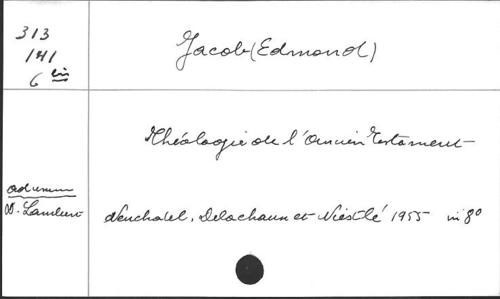 313
141
6 bis
Jacob (Edmond)
Théologie de l'Ancien Testament
ad usum
D. Lambert
Neuchatel, Delachaux et Niestlé 1955 in 8°